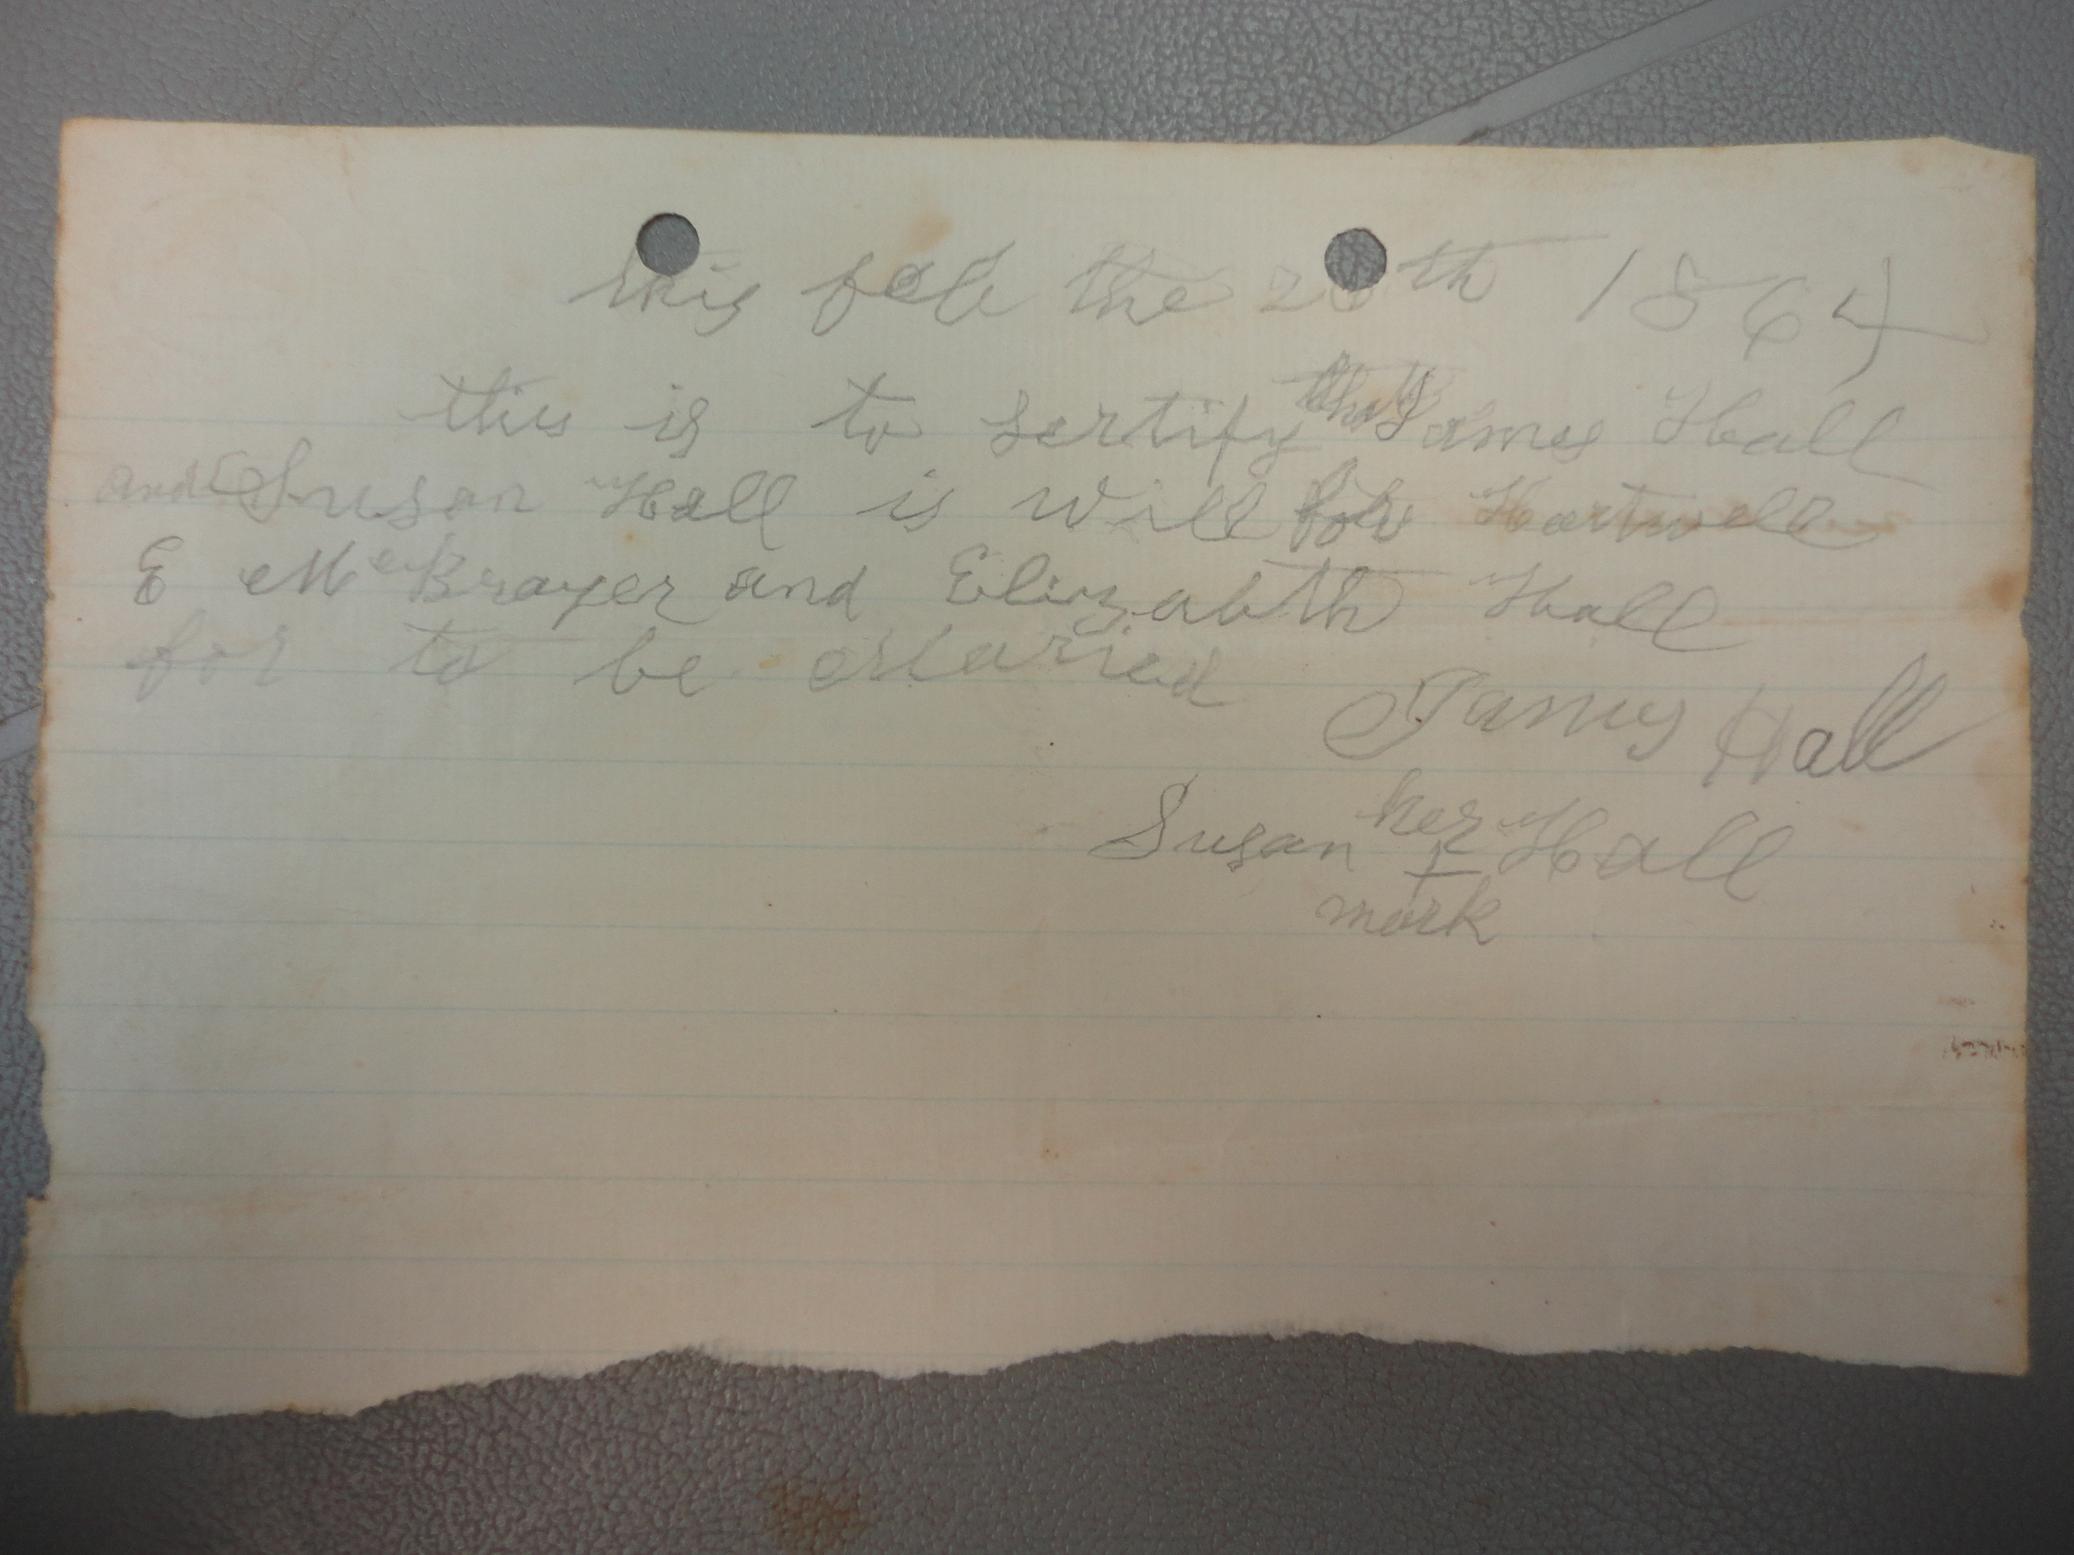 this feb the 20th 1864
this is to sertify that James Hall
and Susan Hall is will for Hartwell
E McBrayer and Elizabth Hall
for to be Maried
James Hall
her
Susan + Hall
mark